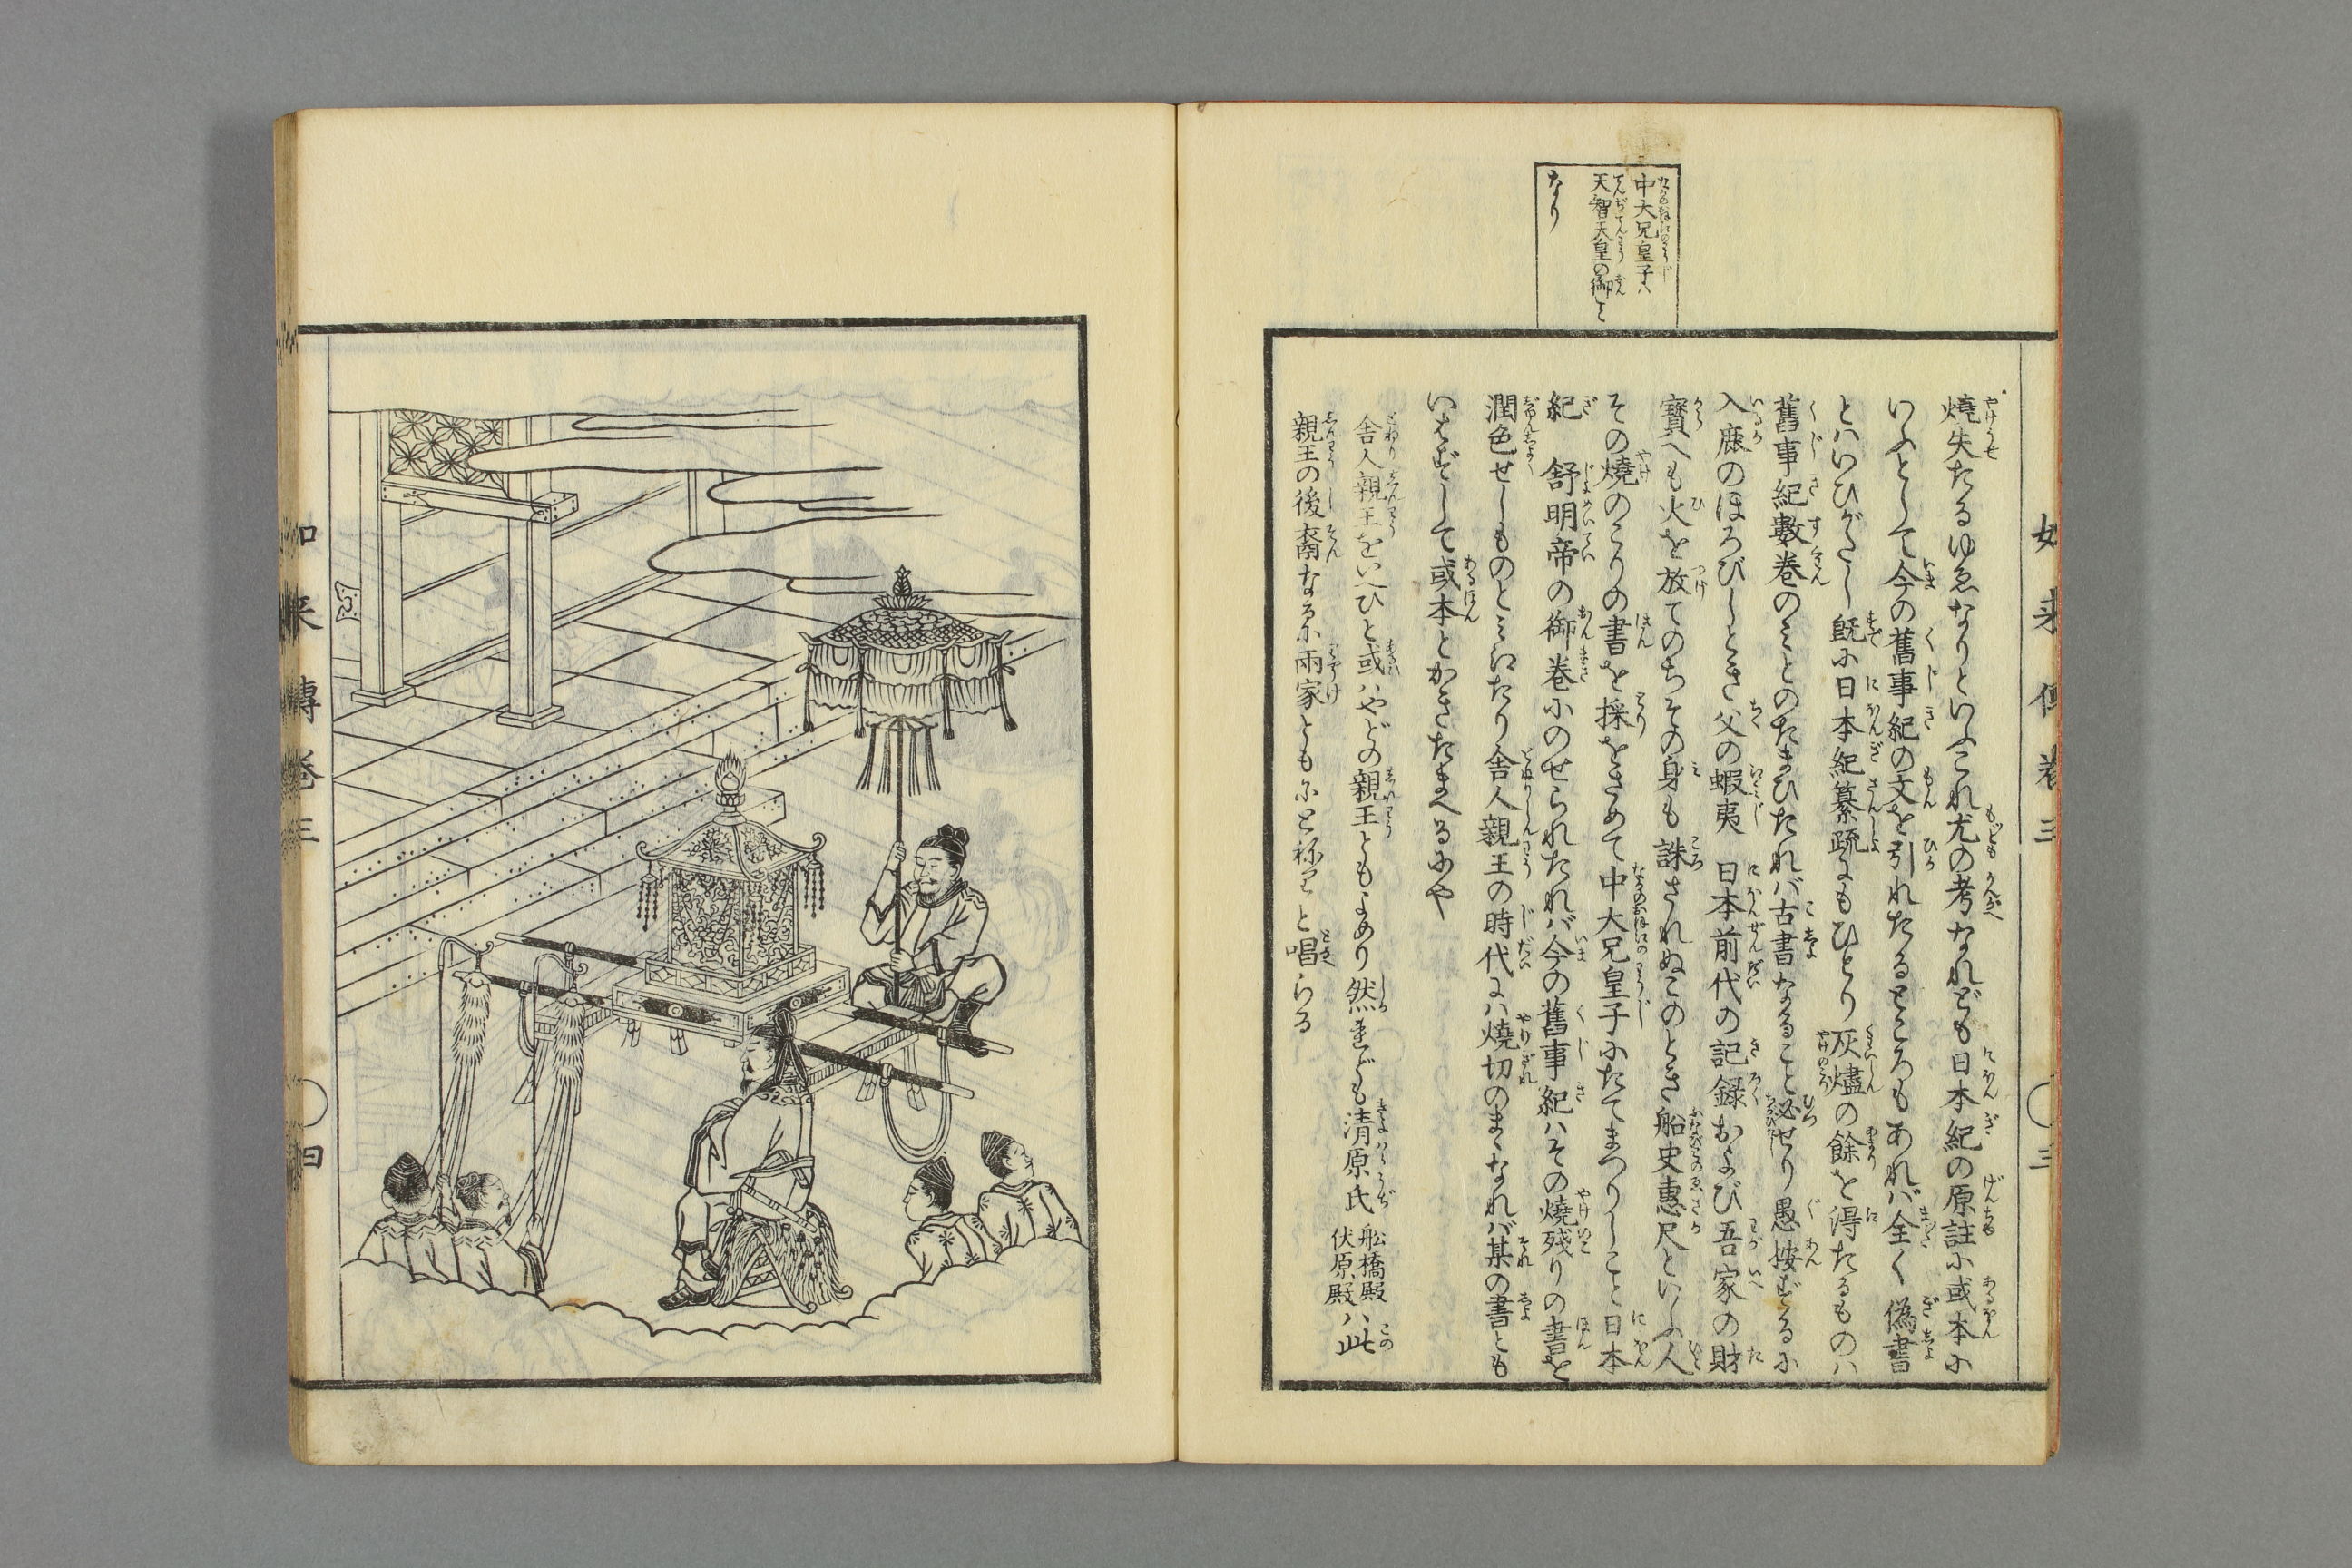 中大兄皇子ハ
天智天皇の御こと
なり
焼失たるゆゑなりといふこれ尤の考なれども日本紀の原註に或本に
いふとして今の舊事紀の文を引れたるところもあれバ全く偽書
とハいひがたし既に日本紀纂疏にもひとり灰燼の餘を得たるものハ
舊事紀數巻のミとのたまひたれバ古書なること必せり愚按ずるに
入鹿のほろびしとき父の蝦夷 日本前代の記録および吾家の財
寳へも火を放てのちその身も誅されぬこのとき船史惠尺といふ人
その燒のこりの書を採をさめて中大兄皇子にたてまつりしこと日本
紀 舒明帝の御巻にのせられたれバ今の舊事紀ハその燒残りの書を
潤色せしものとミえたり舎人親王の時代にハ燒切のまゝなれバ某の書とも
いはずして或本とかきたまへるにや
舎人親王をいへひと或ハやどの親王ともよめり然れども清原氏 舩橋殿 伏原殿 ハ此
親王の後裔なるに兩家ともにとねりと唱らる
如来傳巻三 三
如来傳巻三 四